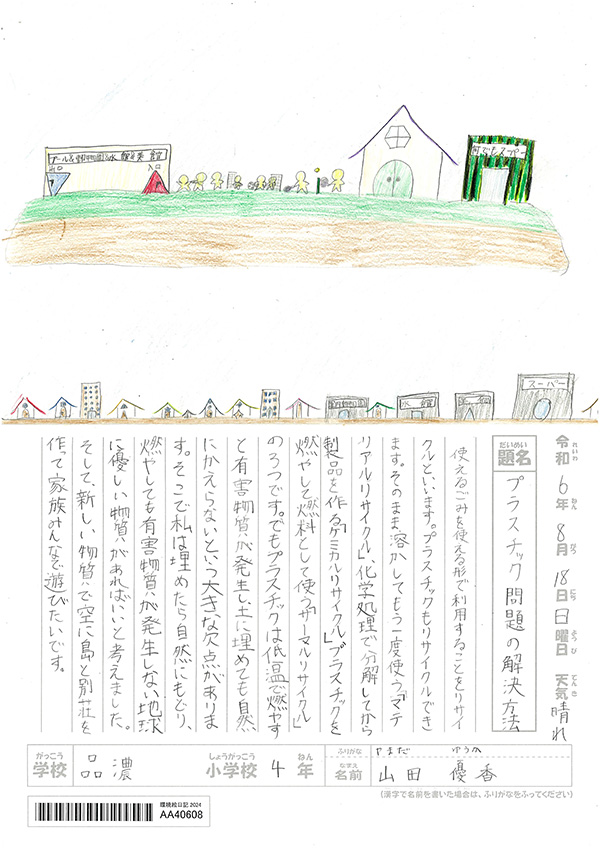 出口
入口
何でもスーパー
スーパー
令和6年8月18日日曜日 天気晴れ
れいわ ねん がつ にち ようび てんき
だいめい
題名 プラスチック問題の解決方法
使えるごみを使える形で利用することをリサイ
クルといいます。プラスチックもリサイクルでき
ます。そのまま溶かしてもう一度使う「マテ
リアルリサイクル」、化学処理で分解してから
製品を作る「ケミカルリサイクル」、プラスチックを
燃やして燃料として使う「サーマルリサイクル」
の3つです。でもプラスチックは低温で燃やす
と有害物質が発生し、土に埋めても自然
にかえらないという大きな欠点がありま
す。そこで私は埋めたら自然にもどり、
燃やしても有害物質が発生しない地球
に優しい物質があればいいと考えました。
そして、新しい物質で空に島と別荘を
作って家族みんなで遊びたいです。
がっこう しょうがっこう ねん ふりがな やまだ ゆうか
学校 品濃 小学校 4年 なまえ 名前 山田 優香
(漢字で名前を書いた場合は、ふりがなをふってください)
環境絵日記 2024
AA40608